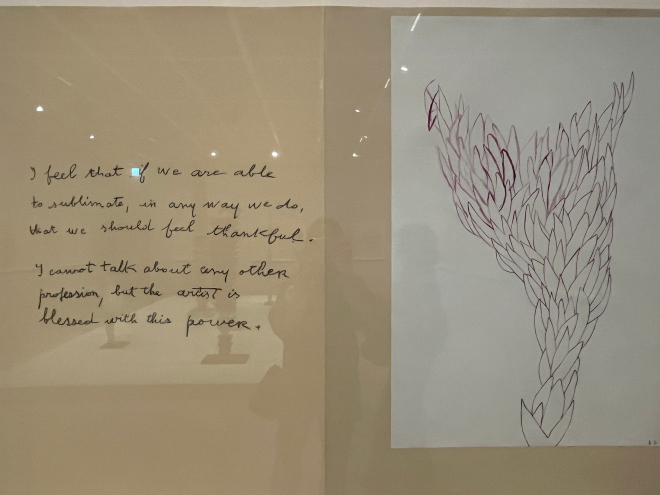 I feel that if we are able
to sublimate, in any way we do,
that we should feel thankful.
I cannot talk about any other
profession, but the artist is
blessed with this power.